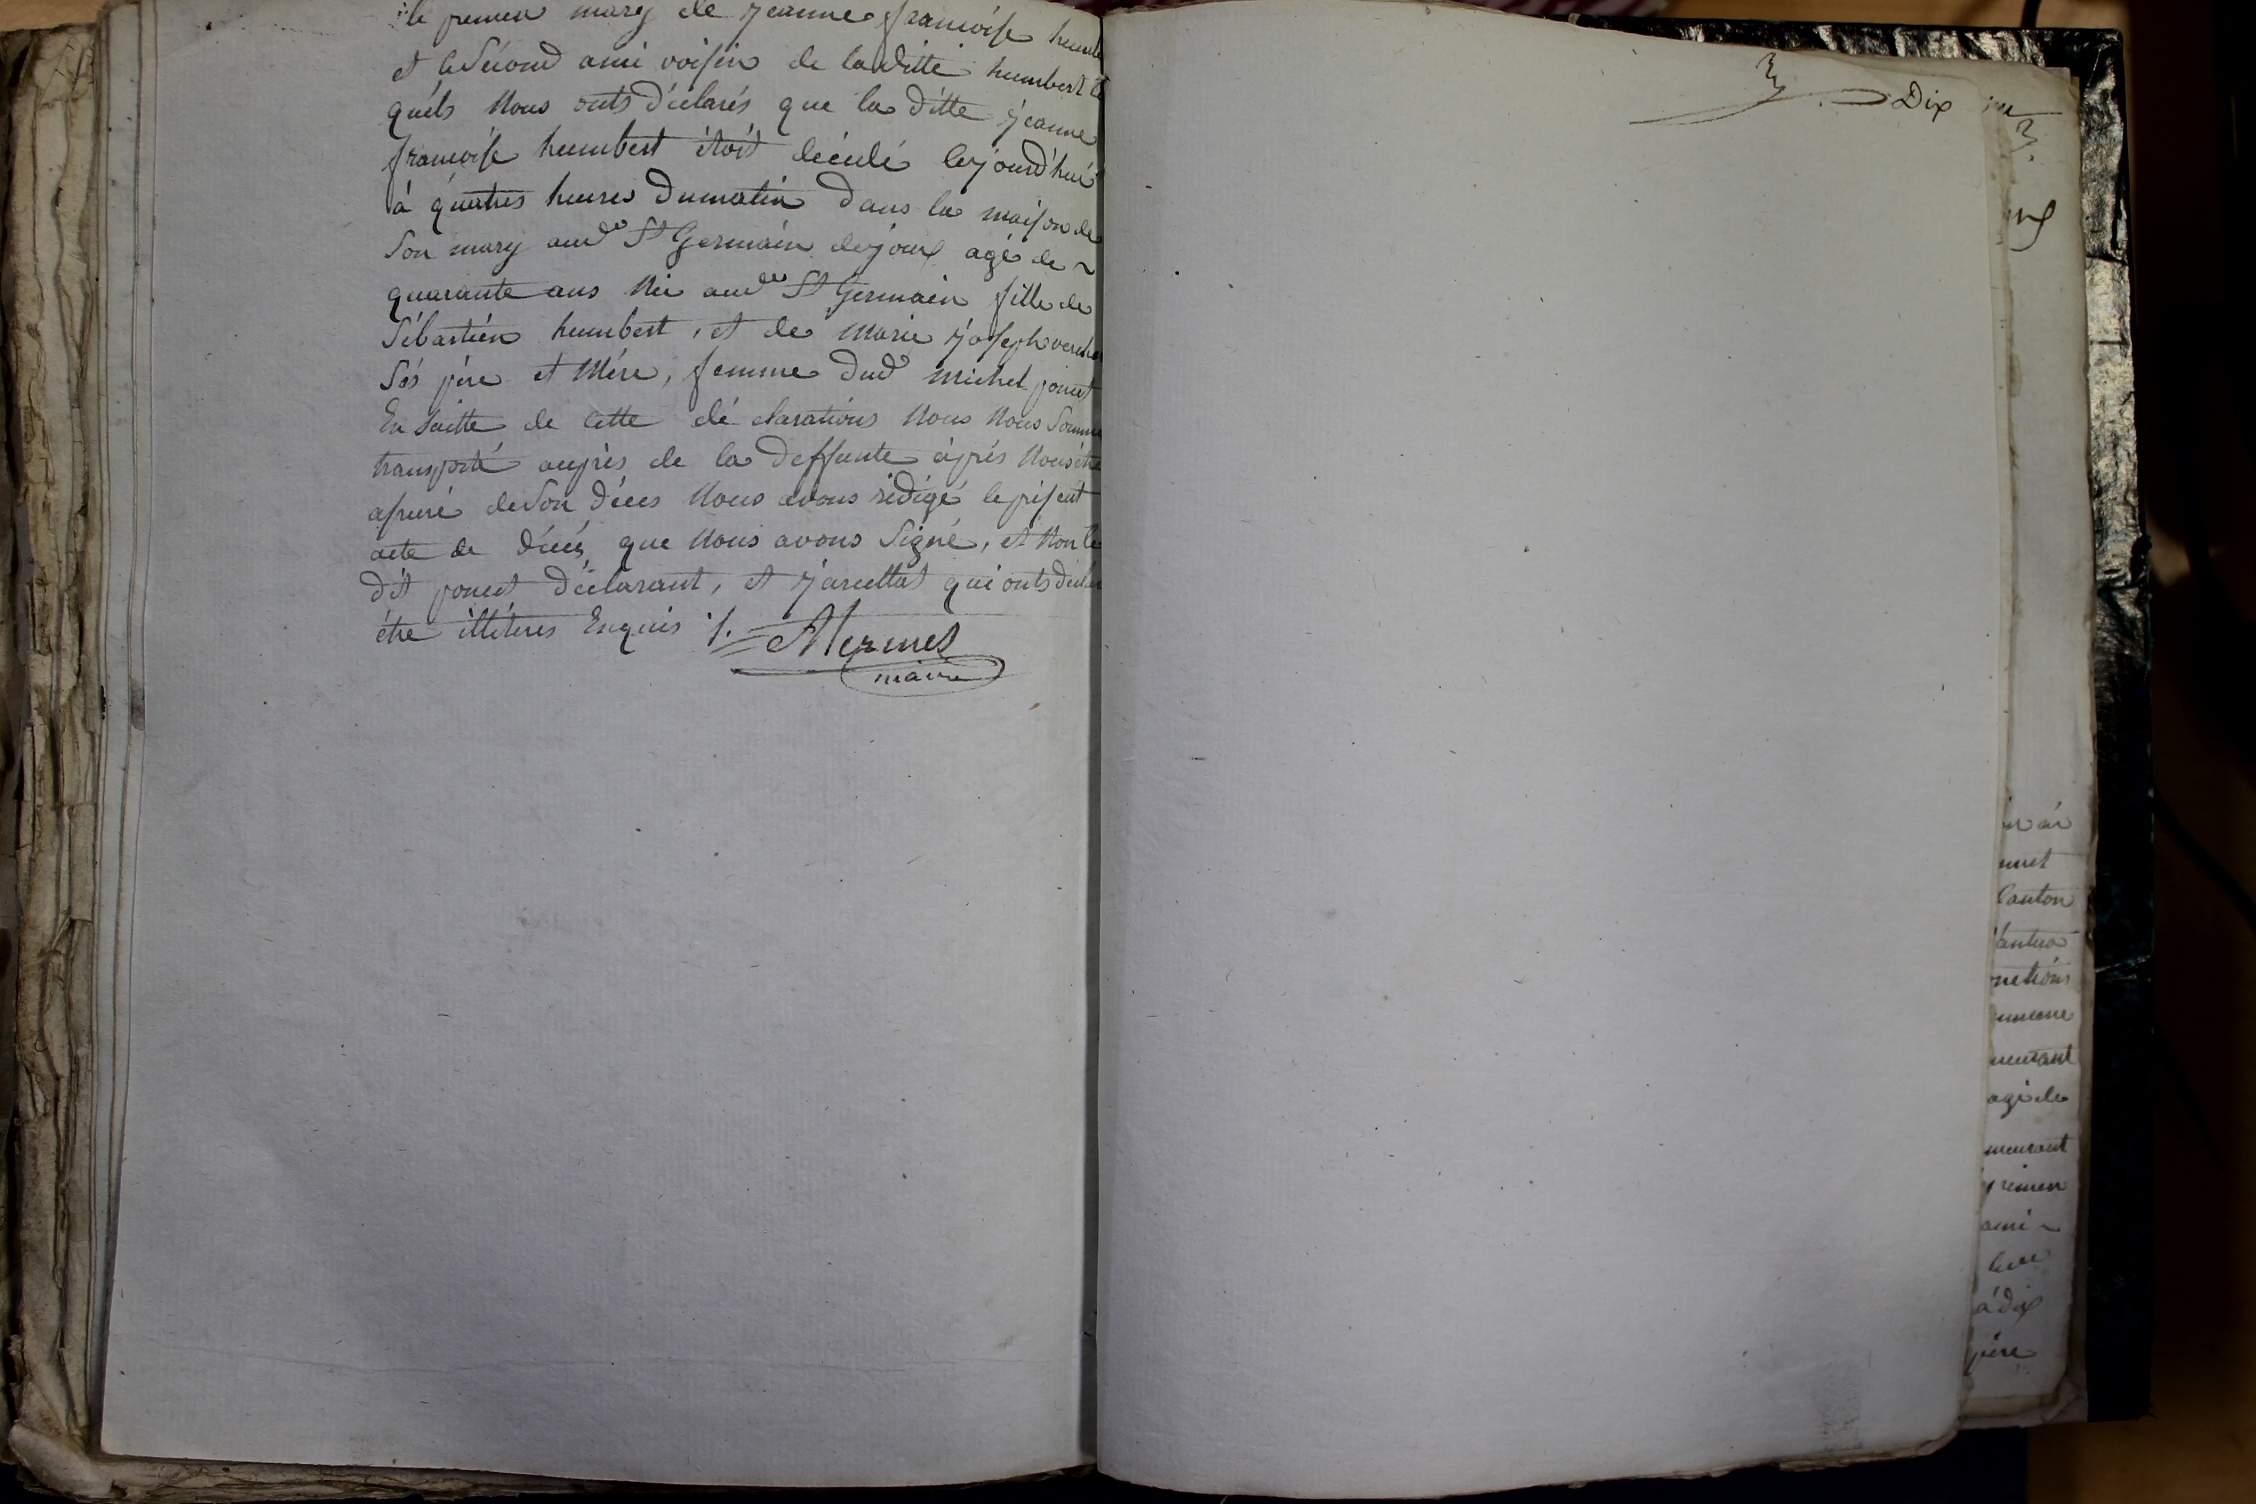 le premier mary de Jeanne françoise humbe
et le Sécond ami voisin de la ditte humbert le
quéls Nous onts déclarés que la ditte Jéanne
françoise humbert étoit décédé cejourd'hui
à quatres heures Dumatin dans la maison de
Son mary aud. St Germain de joux agé de ~
quarante ans Née aud. St Germain fille de
Sébastién humbert, et de Marie Joseph
Sés père et Mére, femme dud. michel ponct
En Suitte de cette dé clarations Nous Nous Somme
transporté auprès de la deffunte àprés Nous être
assuré de Son décés Nous avons rédigé le présent
acte de décés que Nous avons Signé, et Non le
dit ponct Déclarant, et Jarcellat qui onts déclar
étre illitérés Enquis ./.
Mermet
maire
Dix
Canton
nantua
onctions
meurant
agé de
meurant
premier
ami ~
à dix
père